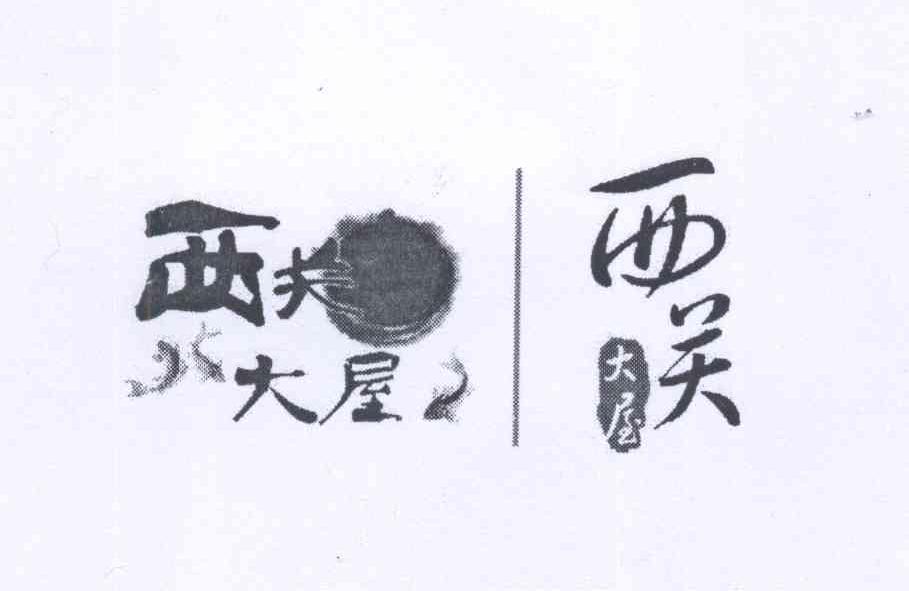 西关
大屋
西关
大屋